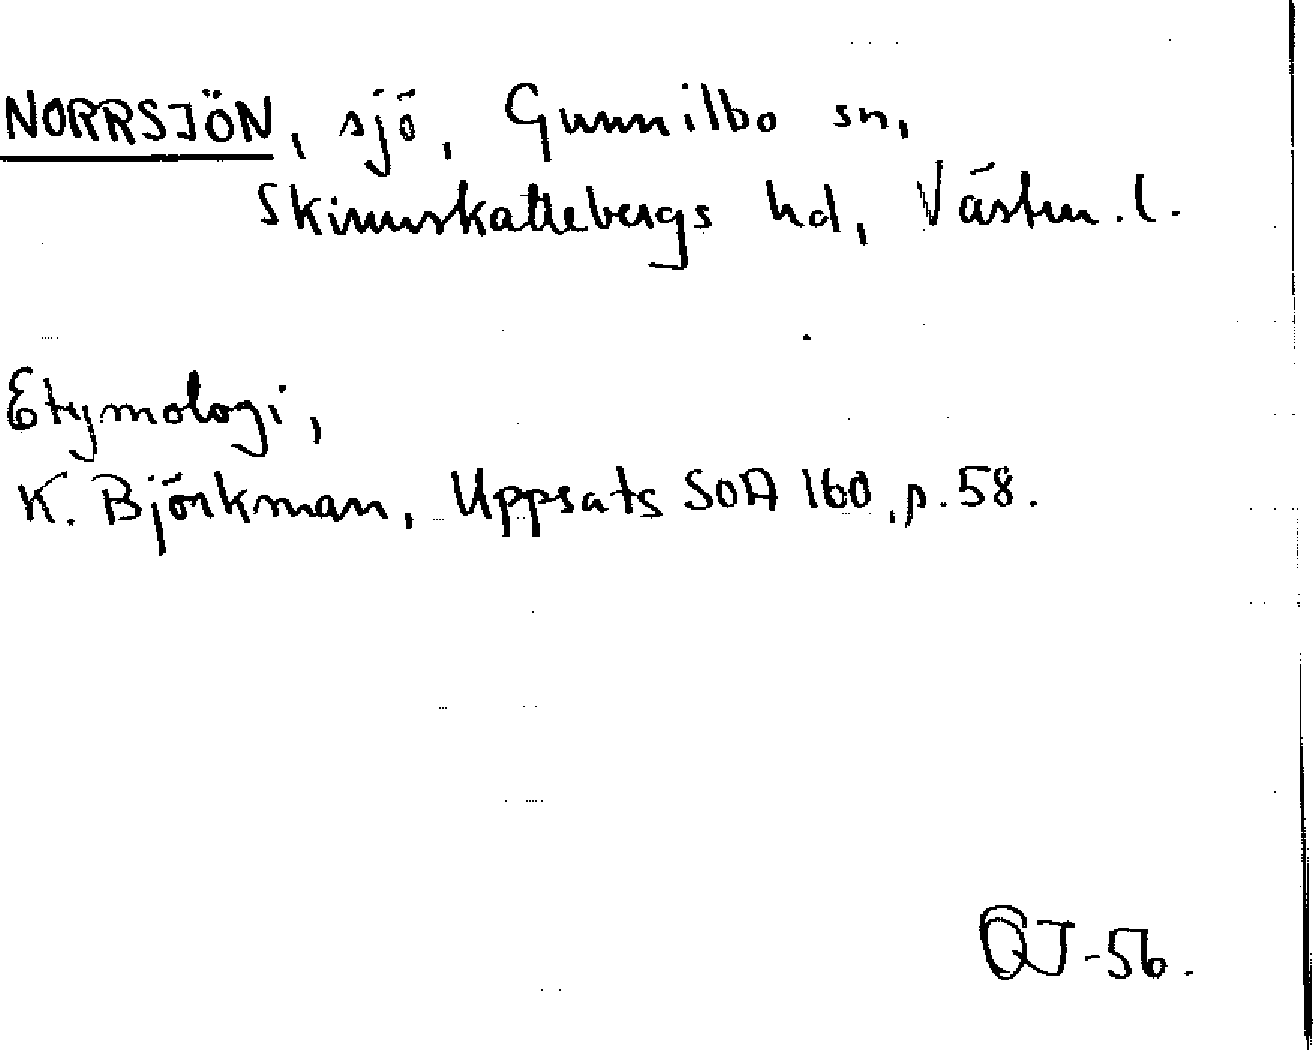 NORRSJÖN, sjö, Gunnilbo sn,
Skinnskattebergs hd, Västm. l.
Etymologi,
K. Björkman, Uppsats SOA 160, p. 58.
QJ-56.